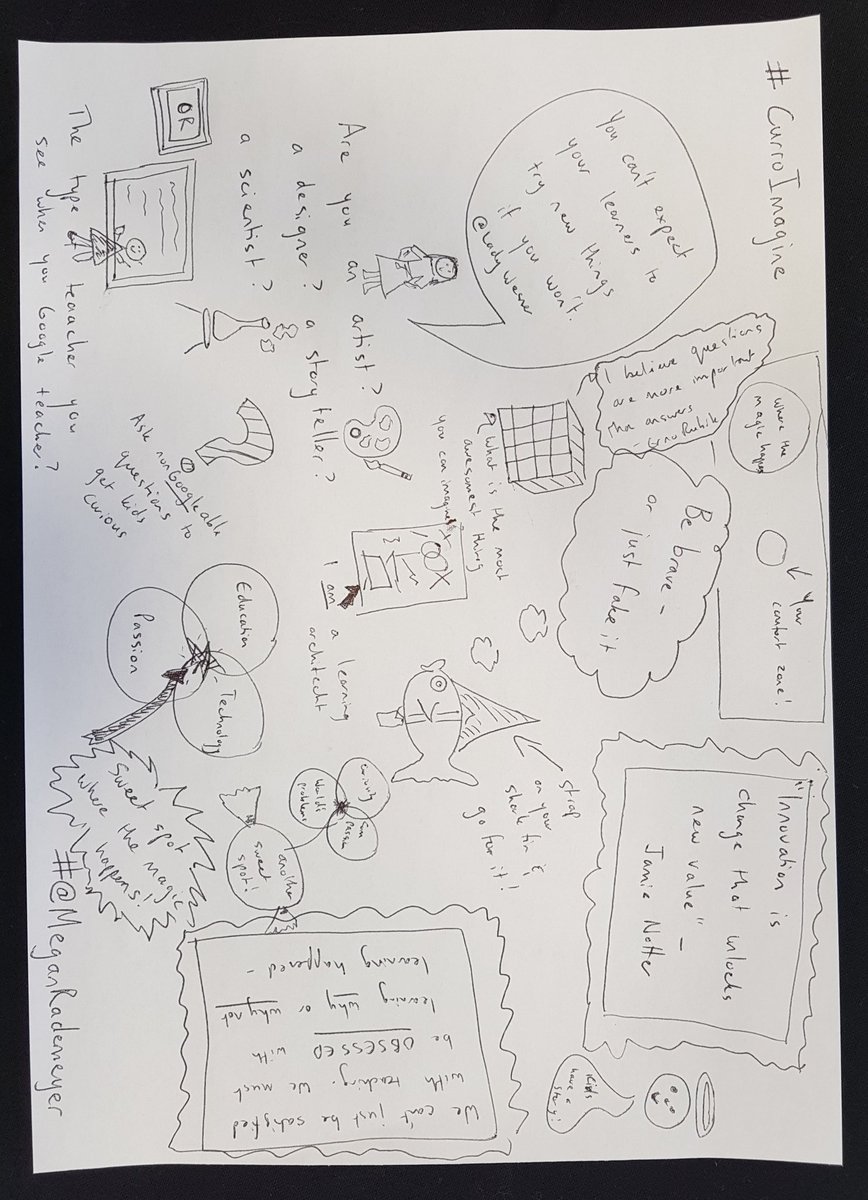 # CurroImagine
You can't expect
your learners to
try new things
if you won't.
@Lady Weaner
I believe questions
are more important
tha answers
- Erno Rubik
where the
magic happens
Your
comfort zone!
Be brave -
or just fake it
"Innovation is
change that unlocks
new value" -
Jamie Notter
Kids
have a
story!
What is the most
awesomest thing
you can imagine
Are you an artist?
a designer? a story teller?
a scientist?
OR
The type of teacher you
see when you Google teacher?
I am a learning
architecht
strap
on your
shark fin &
go for it!
Ask non Googleable
questions to
get kids
curious
Education
Technology
Passion
Sweet spot
where the magic
happens!
Curiosity
World's
problems
another
sweet
spot!
We can't just be satisfied
with teaching. We must
be OBSESSED with
learning why or why not
learning happened -
#@MeganRademeyer